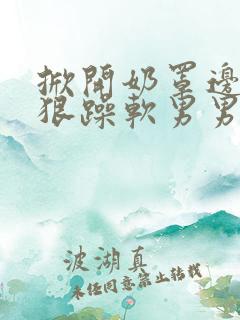 掀開奶罩邊
狠躁軟男男
波湖真
未经同意禁止转载